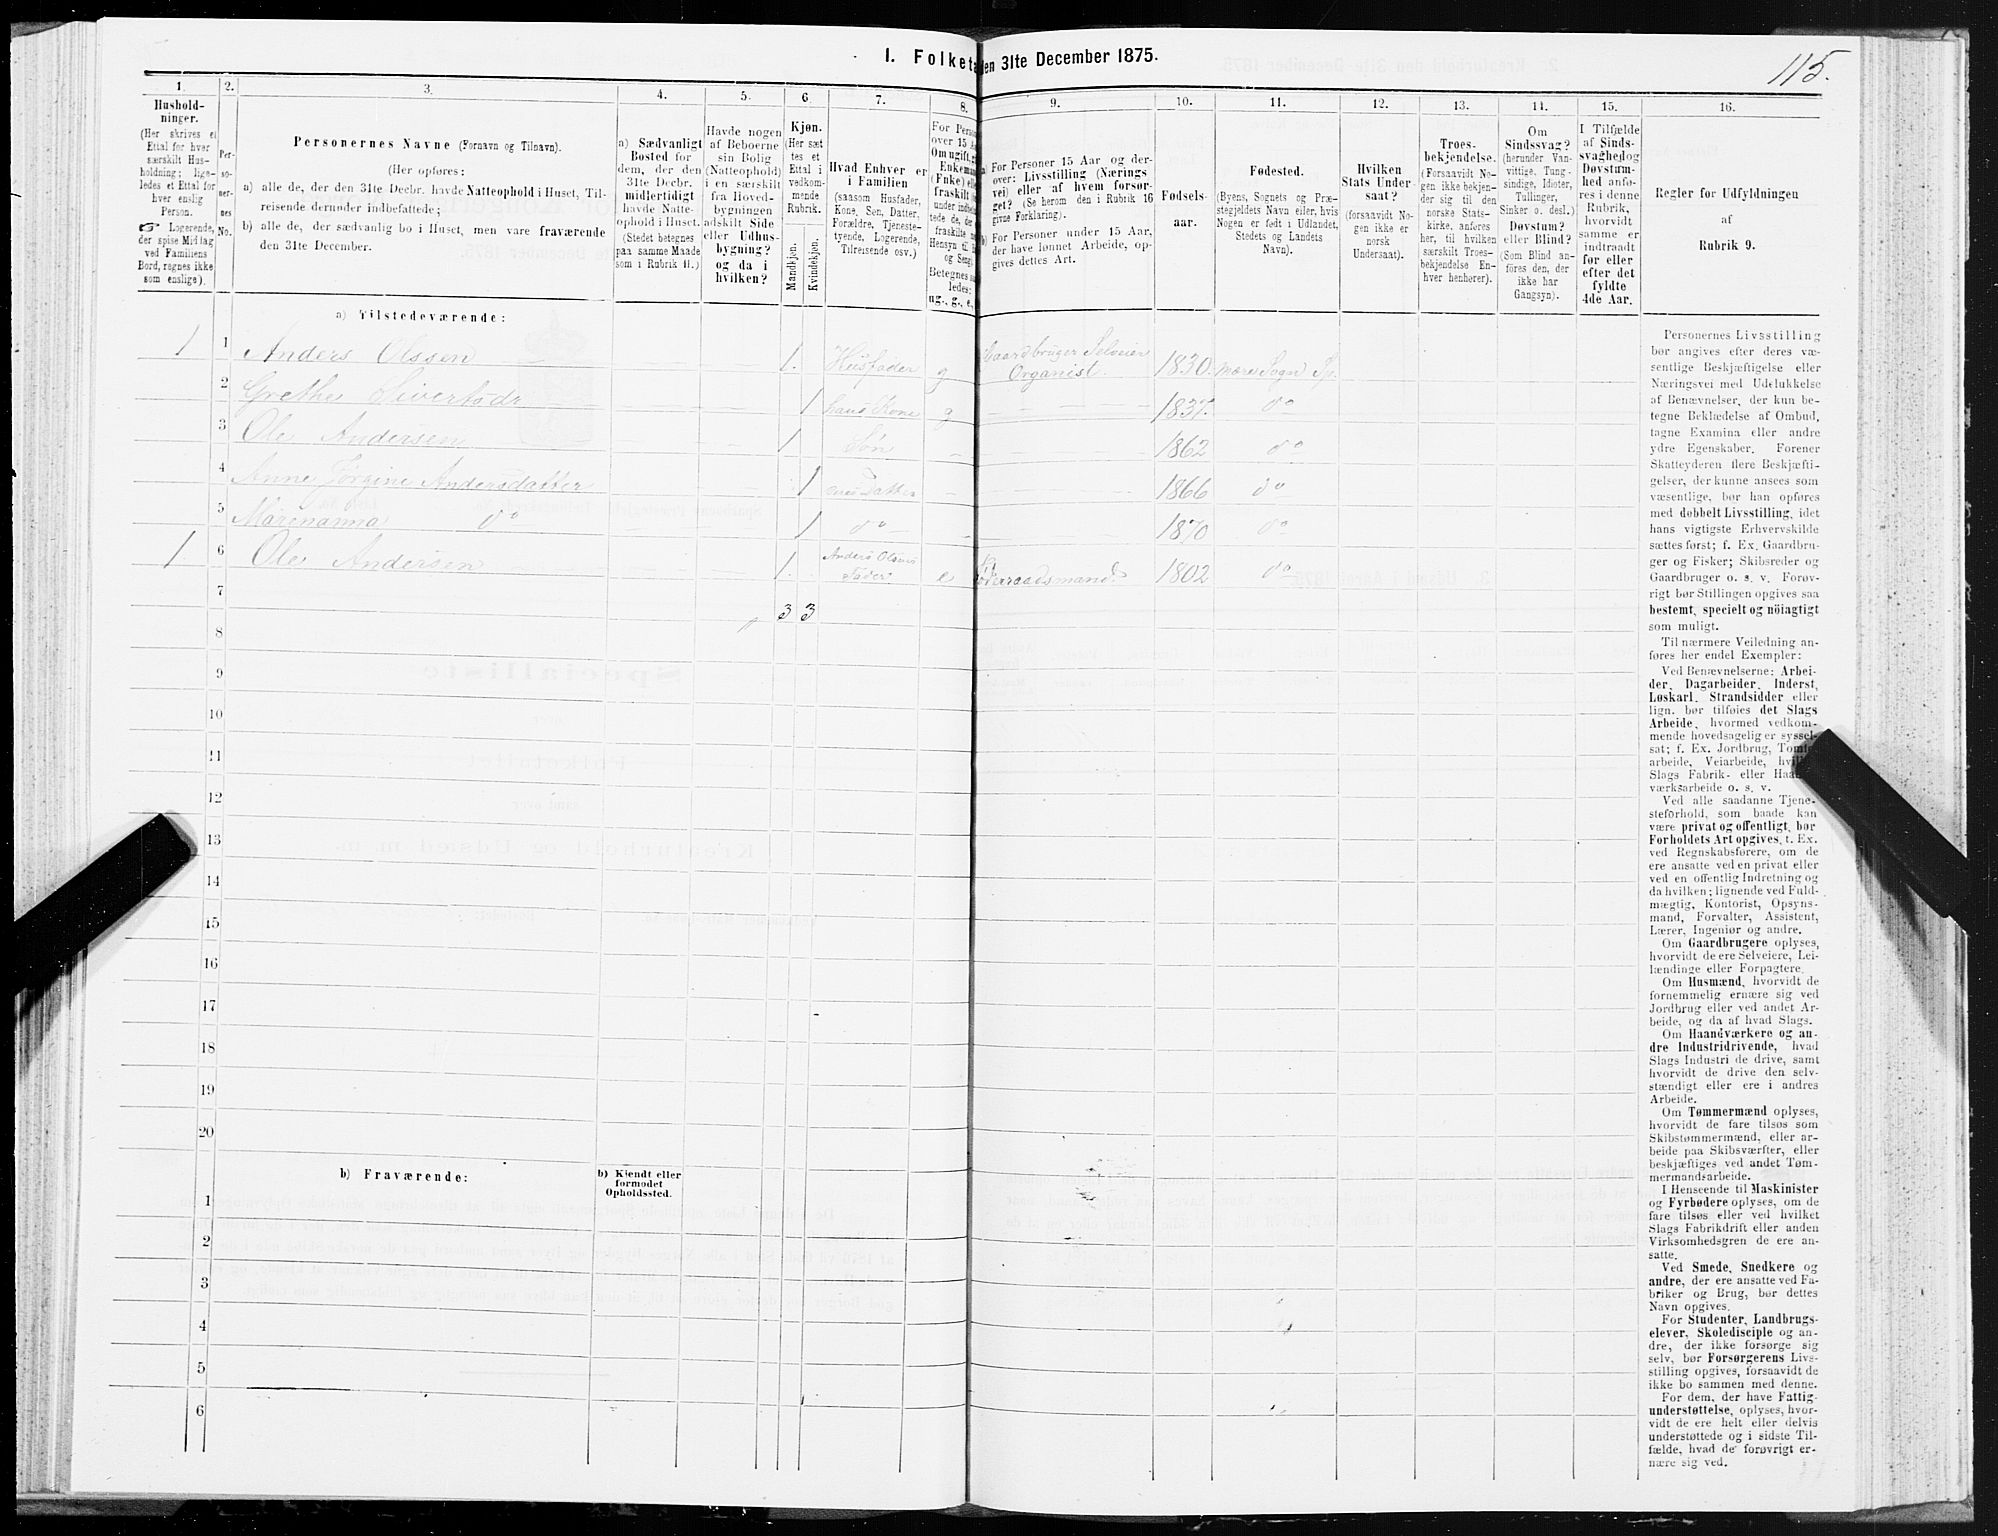 I. Folketæ
en 31te December 1875.
115.
1.
Hushold-
ninger.
(Her skrives et
Ettal for hver
særskilt Hus-
holdning; lige-
ledes et Ettal for
hver enslig
Person.
Logerende,
der spise Middag
ved Familiens
Bord, regnes ikke
som enslige).
2.
Per-
so-
ner-
nes
No.
3.
Personernes Navne (Fornavn og Tilnavn).
(Her opføres:
a) alle de, der den 31te Decbr. havde Natteophold i Huset, Til-
reisende derunder indbefattede;
b) alle de, der sædvanlig bo i Huset, men vare fraværende
den 31te December.
4.
a) Sædvanligt
Bosted for
dem, der den
31te Decbr.
midlertidigt
havde Natte-
ophold i Huset.
(Stedet betegnes
paa samme Maade
som i Rubrik 11.)
5.
Havde nogen
af Beboerne
sin Bolig
(Natteophold)
i en særskilt
fra Hoved-
bygningen
adskilt Side
eller Udhus-
bygning?
og da i
hvilken?
6.
Kjøn.
(Her sæt
tes et
Ettal i
vedkom-
mende
Rubrik.
Mandkjøn.
Kvindekjøn.
7.
Hvad Enhver er
i Familien
(saasom Husfader,
Kone, Søn, Datter,
Forældre, Tjeneste-
tyende, Logerende,
Tilreisende osv.)
8.
For Perso
over 15 Aa
Om ugift, g
Enkema
(Enke) ell
fraskilt
under indbe
tede de, de
fraskilte
Hensyn til
og Seng
Betegnes sa
ledes:
ug., g., e.,
9.
a) For Personer 15 Aar og der-
over: Livsstilling (Nærings
vei) eller af hvem forsør-
get? (Se herom den i Rubrik 16
givne Forklaring).
b) For Personer under 15 Aar,
der have lønnet Arbeide, op-
gives dettes Art.
10.
Fødsels-
aar.
11.
Fødested.
(Byens, Sognets og Præ-
stegjeldets Navn eller, hvis
Nogen er født i Udlandet,
Stedets og Landets
Navn).
12.
Hvilken
Stats Under-
saat?
(forsaavidt No-
gen ikke er
norsk
Undersaat).
13.
Troes-
bekjendelse.
(Forsaavidt No-
gen ikke bekjen-
der sig til den
norske Stats-
kirke, anfø-
res her, til hvilken
særskilt Troes-
bekjendelse En-
hver henhører).
14.
Om
Sindssvag?
(herunder Van-
vittige, Tung-
sindige, Idioter,
Tullinger,
Sinker o. desl.)
Døvstum?
eller Blind?
(Som Blind an-
føres den, der
ikke har
Gangsyn).
15.
I Tilfælde
af Sinds-
svaghed og
Døvstum-
hed anfø-
res i denne
Rubrik,
hvorvidt
samme er
indtraadt
før eller
efter det
fyldte
4de Aar.
16.
Regler før Udfyldningen
af
Rubrik 9.
a) Tilstedeværende:
1 1 Anders Olssen 1. Husfader g Gaardbruger Selveier Organist. 1830. Mære Sogn Sp.
2 Grethe Sivertsdtr 1 hans Kone g 1837. do
3 Ole Andersen 1 Søn 1862 do
4 Anne Jørgine Andersdatter 1 Datter 1866 do
5 Marenanna do 1 do 1870 do
1 6 Ole Andersen 1. Anders Olsens Fader e Føderaadsmand. 1802 do
7 3 3
8
9
10
11
12
13
14
15
16
17
18
19
20
b) Fraværende:
b) Kjendt eller
formodet
Opholdssted.
1
2
3
4
5
6
Personernes Livsstilling
bør angives efter deres væ-
sentlige Beskjæftigelse eller
Næringsvei med Udelukkelse
af Benævnelser, der kun be-
tegne Beklædelse af Ombud,
tagne Examina eller andre
ydre Egenskaber. Forener
Skatteyderen flere Beskjæfti-
gelser, der kunne ansees som
væsentlige, bør han opføres
med dobbelt Livsstilling, idet
hans vigtigste Erhvervskilde
sættes først; f. Ex. Gaardbru-
ger og Fisker; Skibsreder og
Gaardbruger o. s. v. Forøv-
rigt bør Stillingen opgives saa
bestemt, specielt og nöiagtigt
som muligt.
Til nærmere Veiledning an-
føres her endel Exempler:
Ved Benævnelserne: Arbei-
der, Dagarbeider, Inderst,
Løskarl, Strandsidder eller
lign. bør tilføies det Slags
Arbeide, hvormed vedkom-
mende hovedsagelig er syssel-
sat; f. Ex. Jordbrug, Tomte-
arbeide, Veiarbeide, hvil
Slags Fabrik- eller Haa
værksarbeide o. s. v.
Ved alle saadanne Tjene-
steforhold, som baade kan
være privat og offentligt, bør
Forholdets Art opgives, t. Ex.
ved Regnskabsførere, om de
ere ansatte ved en privat eller
ved en offentlig Indretning og
da hvilken; lignende ved Fuld-
mægtig, Kontorist, Opsyns-
mand, Forvalter, Assistent,
Lærer, Ingeniør og andre.
Om Gaardbrugere oplyses,
hvorvidt de ere Selveiere, Lei-
lændinge eller Forpagtere.
Om Husmænd, hvorvidt de
fornemmelig ernære sig ved
Jordbrug eller ved andet Ar-
beide, og da af hvad Slags.
Om Haandværkere og an-
dre Industridrivende, hvad
Slags Industri de drive, samt
hvorvidt de drive den selv-
stændigt eller ere i andres
Arbeide.
Om Tømmermænd oplyses,
hvorvidt de fare tilsøs som
Skibstømmermænd, eller ar-
beide paa Skibsværfter, eller
beskjæftiges ved andet Tøm-
mermandsarbeide.
I Henseende til Maskinister
og Fyrbødere oplyses, om de
fare tilsøs eller ved hvilket
Slags Fabrikdrift eller anden
Virksomhedsgren de ere an-
satte.
Ved Smede, Snedkere og
andre, der ere ansatte ved Fa-
briker og Brug, bør dettes
Navn opgives.
For Studenter, Landbrugs-
elever, Skoledisciple og an-
dre, der ikke forsørge sig
selv, bør Forsørgerens Livs-
stilling opgives, forsaavidt de
ikke bo sammen med denne.
For dem, der have Fattig-
understøttelse, oplyses, hvor-
vidt de ere helt eller delvis
understøttede og i sidste Til-
fælde, hvad de forøvrigt er-
nære sig ved.